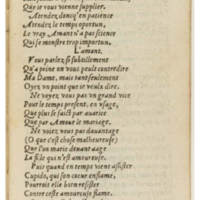 Que ie vous vienne supplier.
Atendez, donq' en patience
Atendez le temps oportun,
Le vray Amant n'a pas science
Qui se monstre trop importun,
L'amant.
Vous parlez si subtillement
Qu'a peine on vous peult contredire
Ma Dame, mais tant seulement
Oyez un point que ie veulx dire.
Ne voyez vous pas un grand vice
Pour le temps present, en usage,
Que plus se faict par auarice
Que par Amour le mariage,
Ne voit on pas dauantage
(O que c'est chose malheureuse)
Que l'un marie deuant aage
La fille qui n'est amoureuse.
Puis quand en temps vient assister
Cupido, qui son coeur enflame,
Pourroit elle bien resister
Contre ceste amoureuse flame.